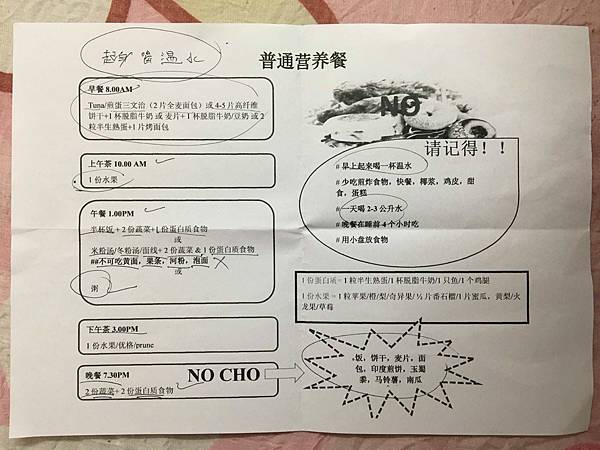 起身喝温水
普通营养餐
早餐 8.00AM
Tuna/煎蛋三文治（2 片全麦面包）或 4-5 片高纤维
饼干+1 杯脱脂牛奶 或 麦片+ 1 杯脱脂牛奶/豆奶 或 2
粒半生熟蛋+1 片烤面包
上午茶 10.00 AM
1 份水果
午餐 1.00PM
半杯饭 + 2 份蔬菜+ 1 份蛋白质食物
或
米粉汤/冬粉汤/面线+ 2 份蔬菜 & 1 份蛋白质食物
##不可吃黄面，粿条，河粉，泡面
或
粥
下午茶 3.00PM
1 份水果/优格/prune
晚餐 7.30PM
NO CHO
2 份蔬菜+ 2 份蛋白质食物
NO
请记得！！
# 早上起来喝一杯温水
# 少吃煎炸食物，快餐，椰浆，鸡皮，甜
食，蛋糕
# 一天喝 2-3 公升水
# 晚餐在睡前 4 个小时吃
# 用小盘放食物
1 份蛋白质 = 1 粒半生熟蛋/1 杯脱脂牛奶/1 只鱼/1 个鸡腿
1 份水果 = 1 粒苹果/橙/梨/奇异果/ ½ 片番石榴/1 片蜜瓜，黄梨/火
龙果/草莓
饭，饼干，麦片，面
包，印度煎饼，玉蜀
黍，马铃薯，南瓜